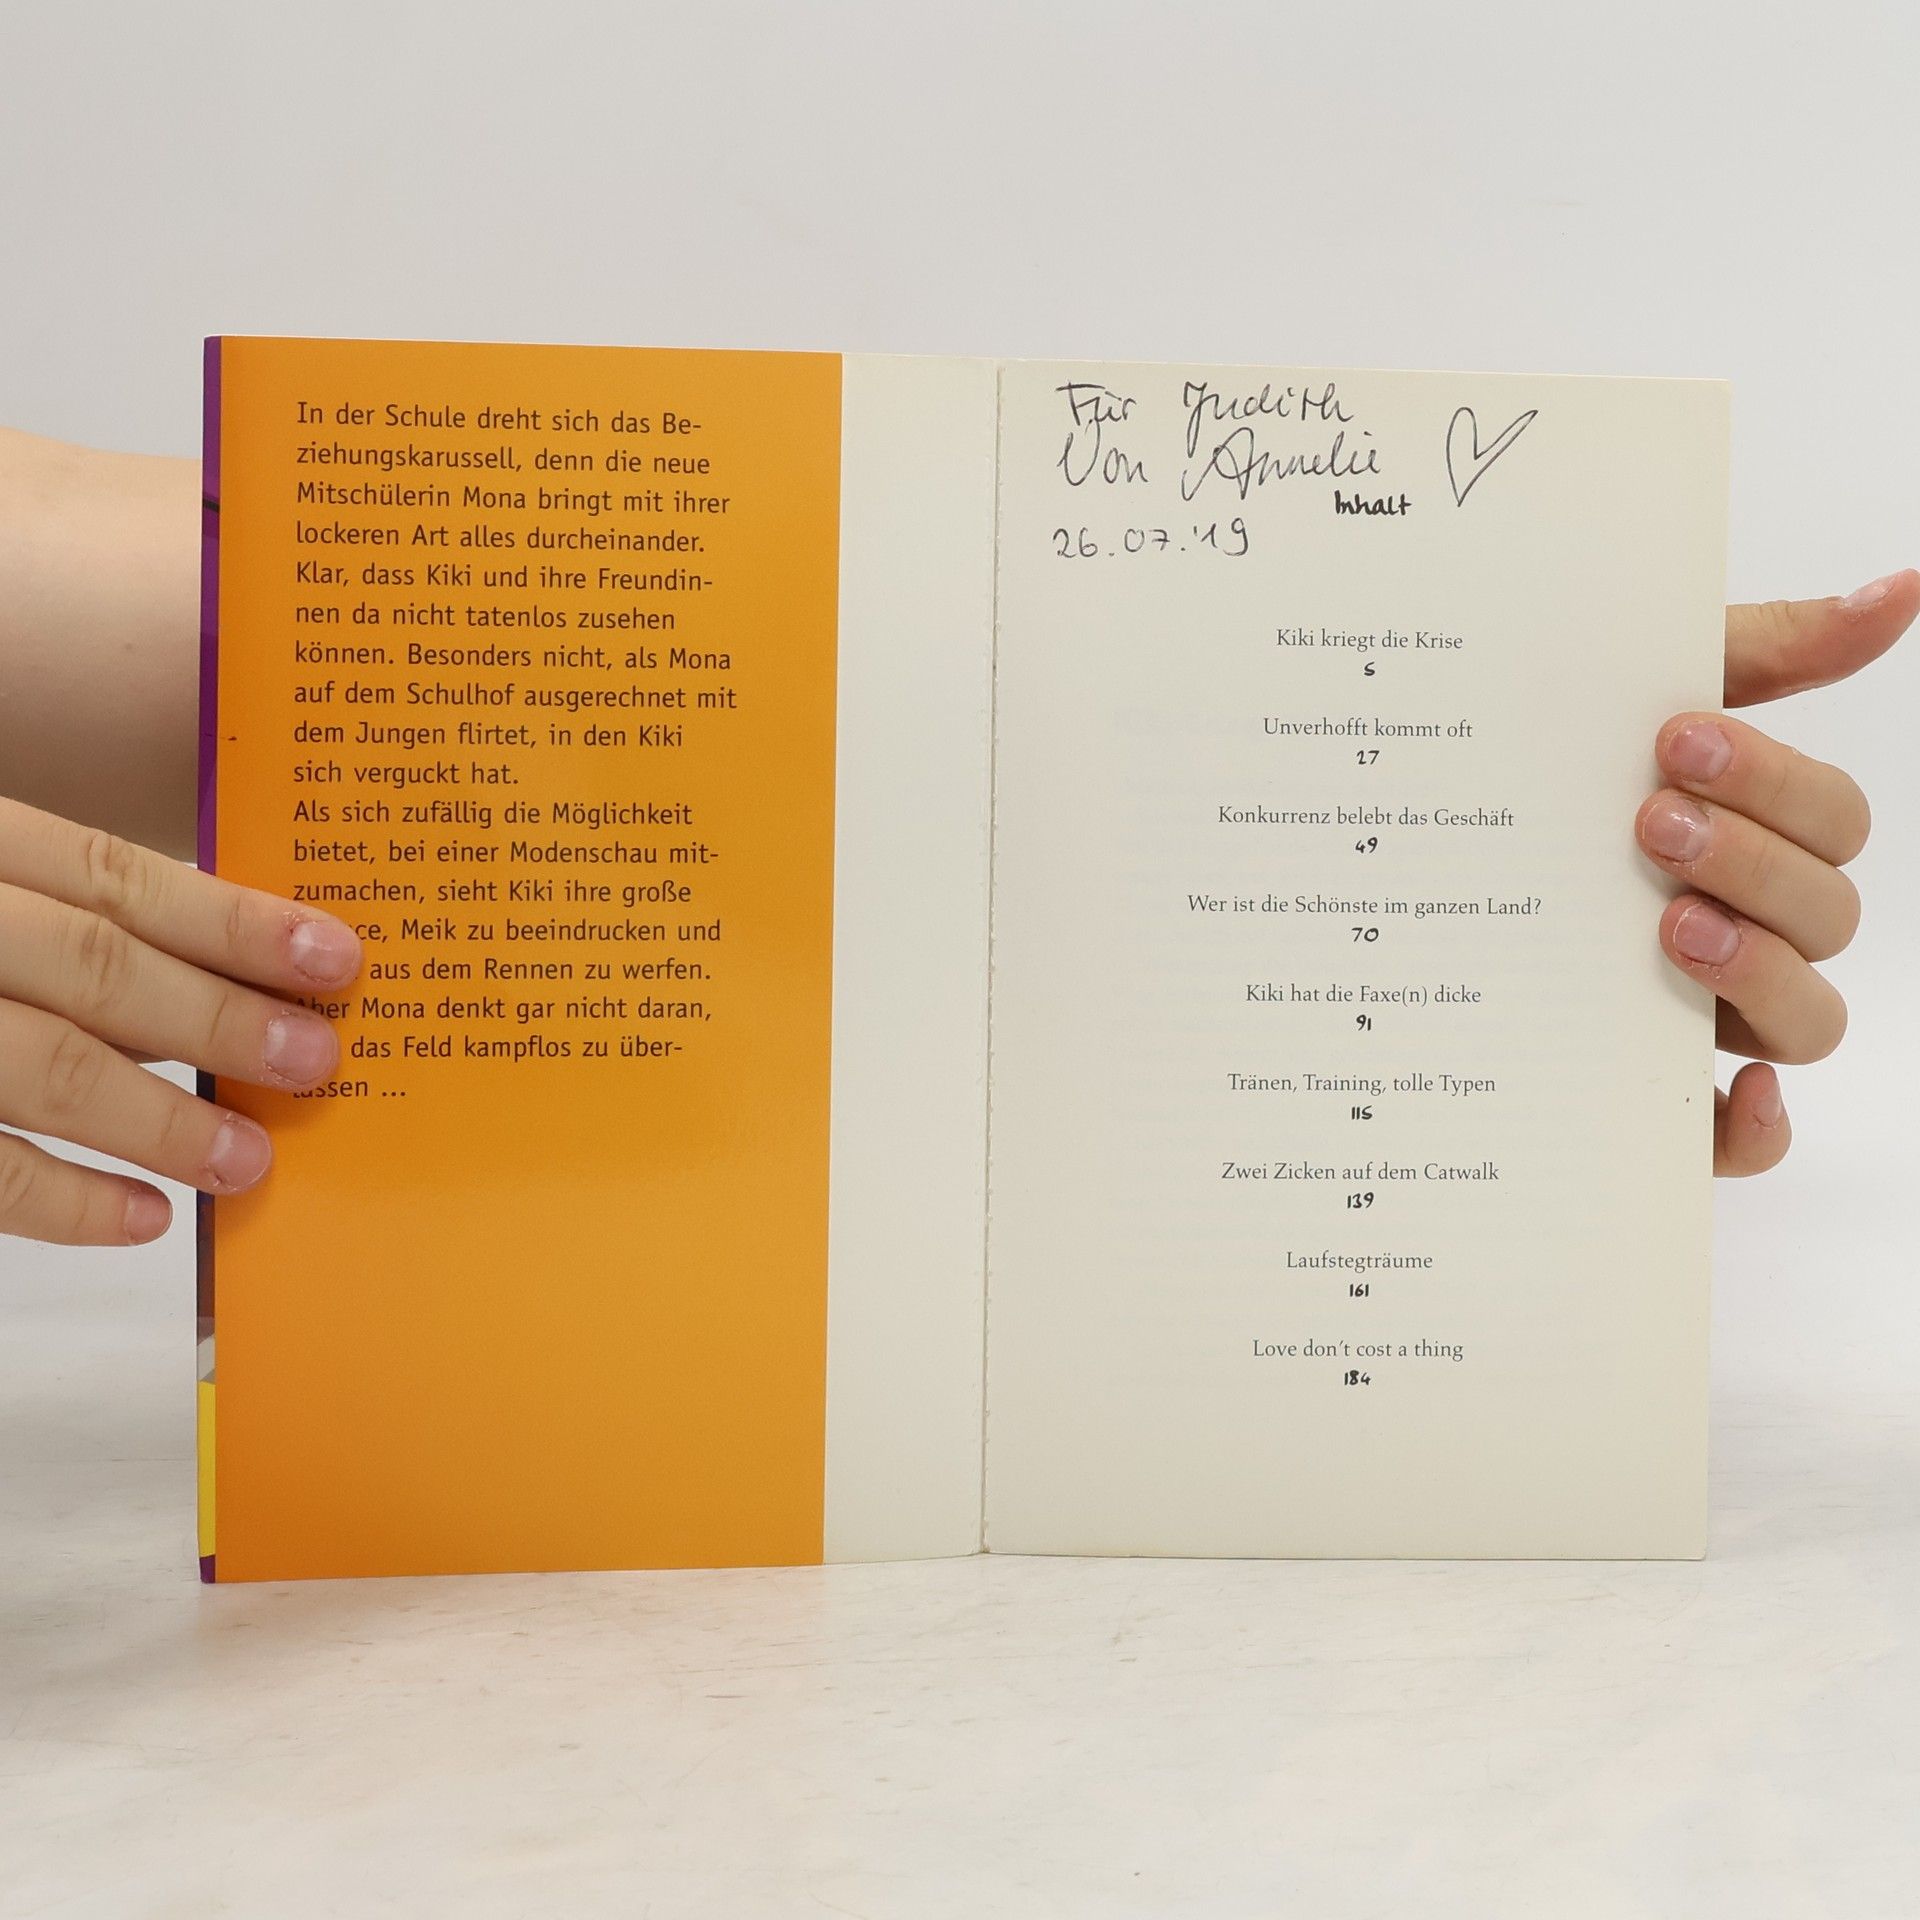 In der Schule dreht sich das Be-
ziehungskarussell, denn die neue
Mitschülerin Mona bringt mit ihrer
lockeren Art alles durcheinander.
Klar, dass Kiki und ihre Freundin-
nen da nicht tatenlos zusehen
können. Besonders nicht, als Mona
auf dem Schulhof ausgerechnet mit
dem Jungen flirtet, in den Kiki
sich verguckt hat.
Als sich zufällig die Möglichkeit
bietet, bei einer Modenschau mit-
zumachen, sieht Kiki ihre große
Meik zu beeindrucken und
aus dem Rennen zu werfen.
Aber Mona denkt gar nicht daran,
das Feld kampflos zu über-
lassen ...
Für Judith
Von Annelie
Inhalt
26.07.'19
Kiki kriegt die Krise
5
Unverhofft kommt oft
27
Konkurrenz belebt das Geschäft
49
Wer ist die Schönste im ganzen Land?
70
Kiki hat die Faxe(n) dicke
91
Tränen, Training, tolle Typen
115
Zwei Zicken auf dem Catwalk
139
Laufstegträume
161
Love don't cost a thing
184